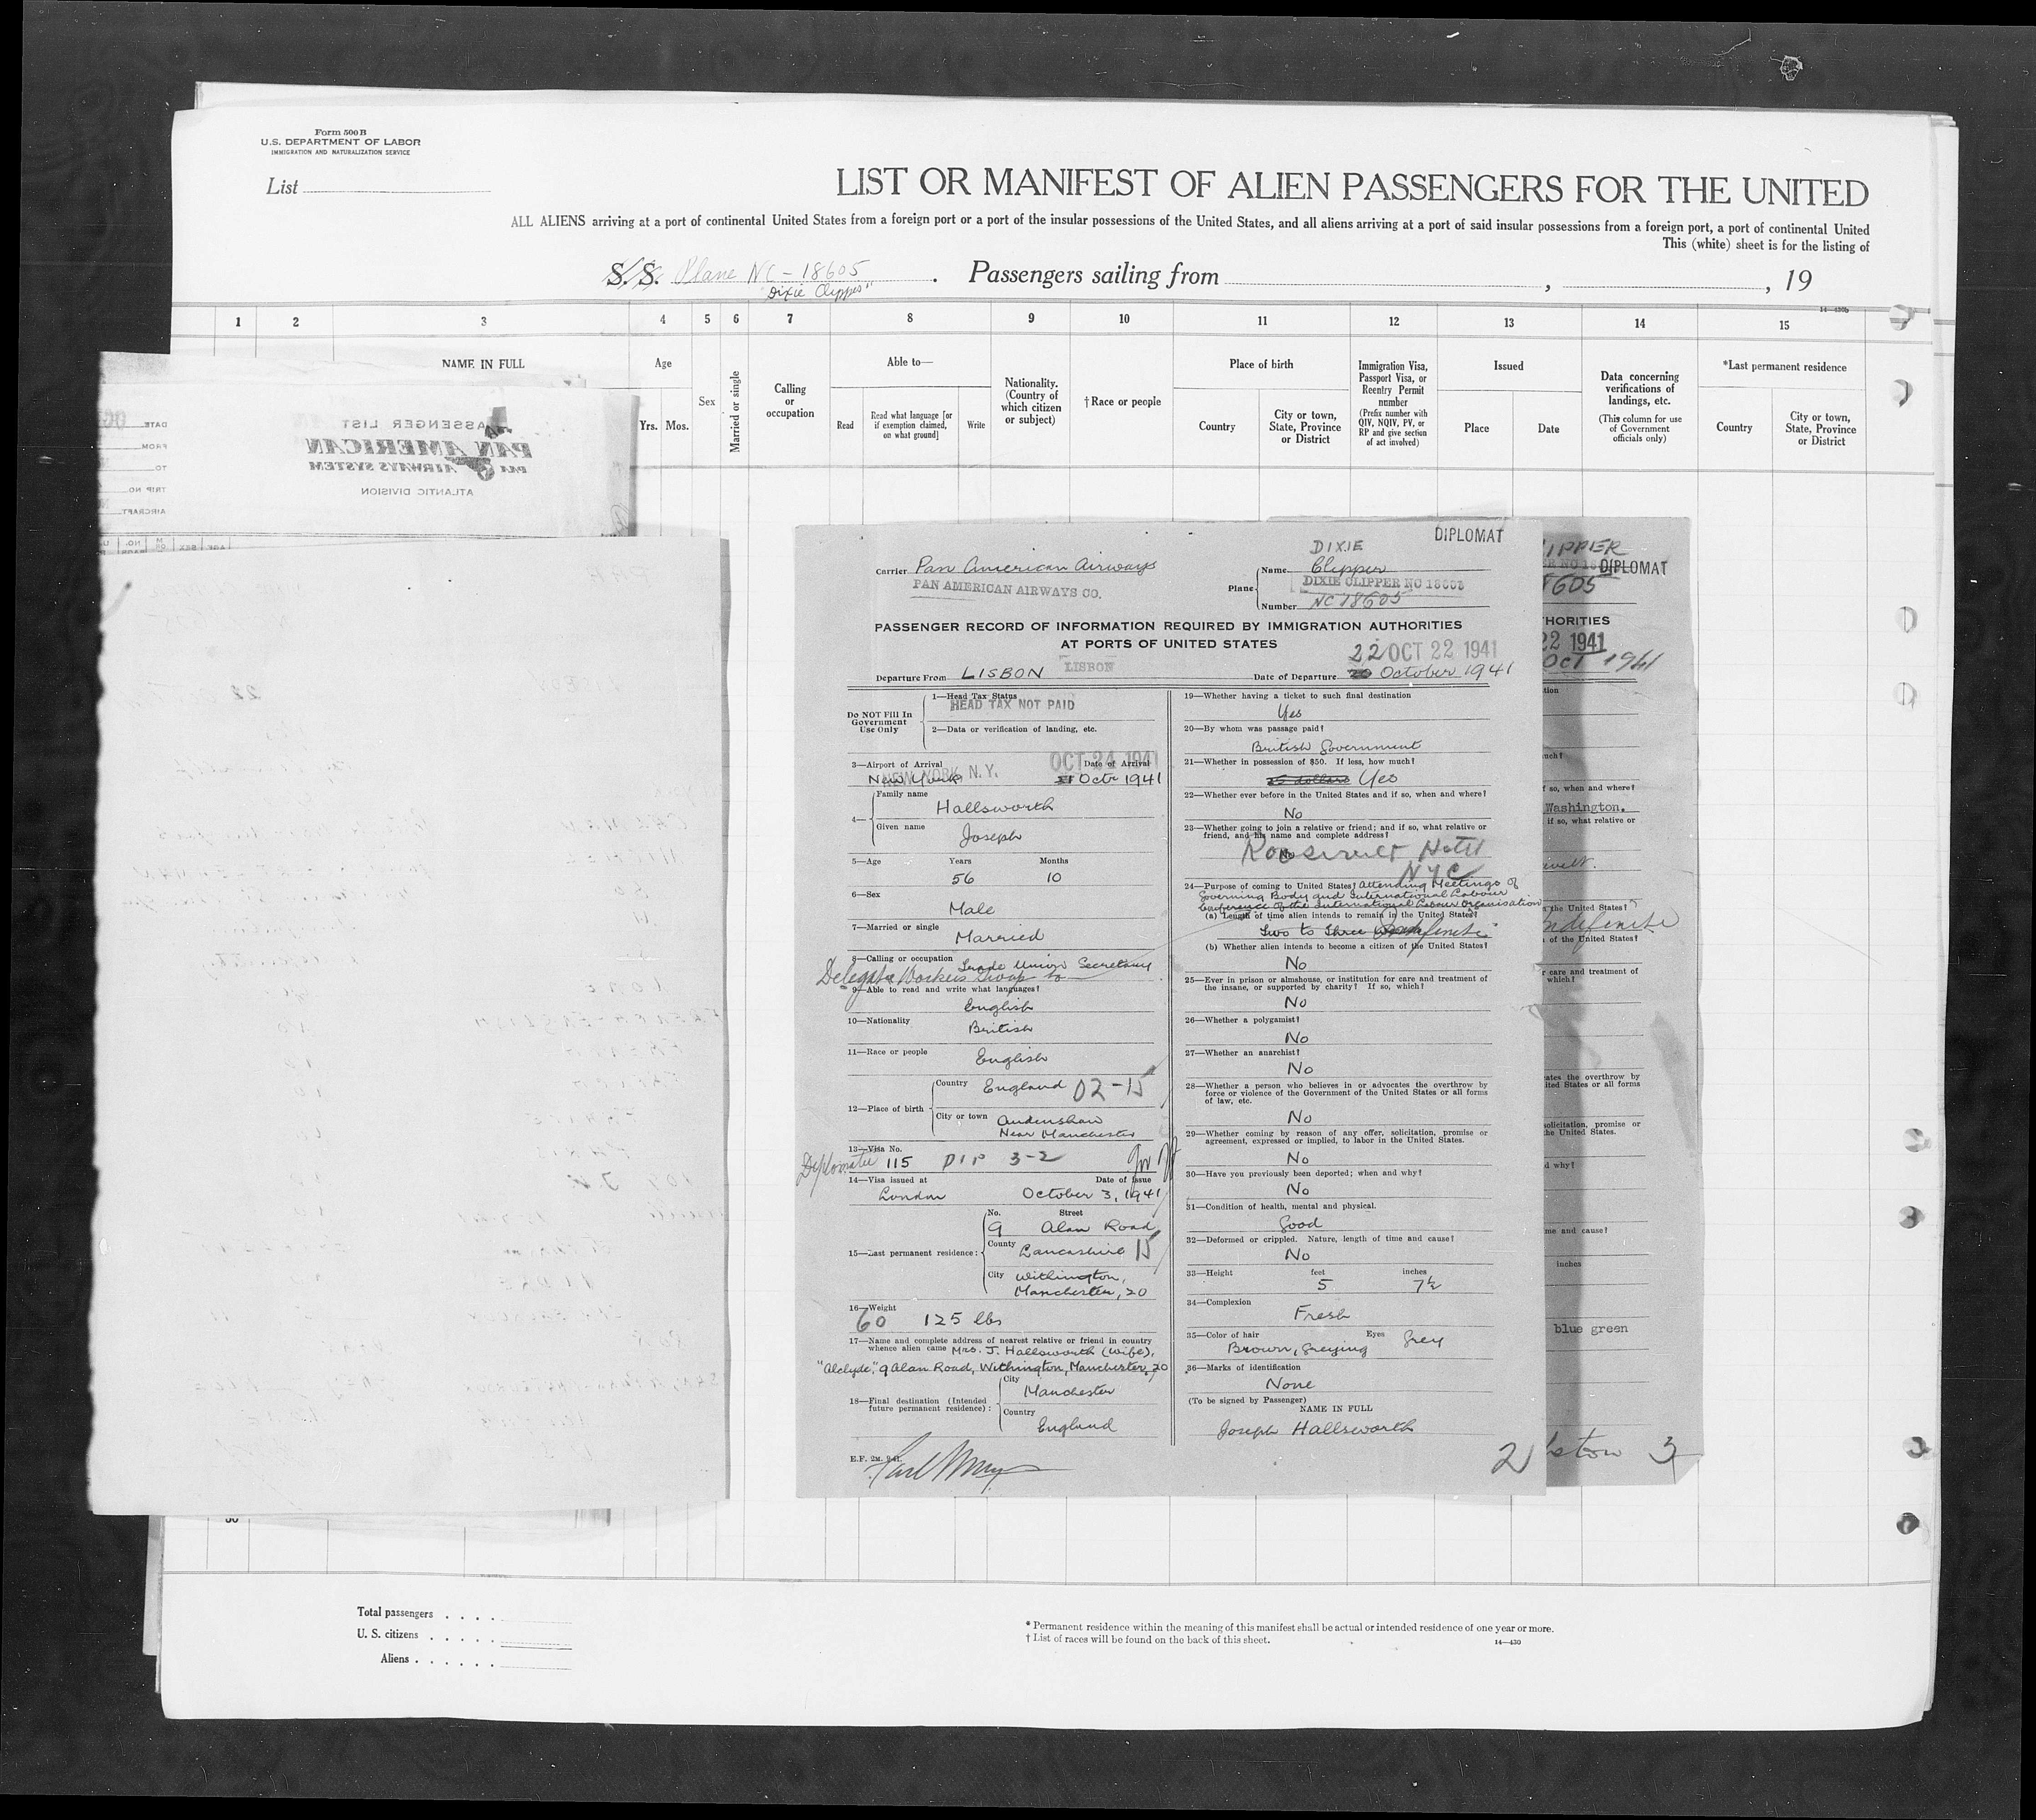 Form 500 B
U.S. DEPARTMENT OF LABOR
IMMIGRATION AND NATURALIZATION SERVICE
List
LIST OR MANIFEST OF ALIEN PASSENGERS FOR THE UNITED
ALL ALIENS arriving at a port of continental United States from a foreign port or a port of the insular possessions of the United States, and all aliens arriving at a port of said insular possessions from a foreign port, a port of continental United
This (white) sheet is for the listing of
S. S. Plane NC-18605 . Passengers sailing from , , 19
"Dixie Clipper"
14-430b
1 2 3 4 5 6 7 8 9 10 11 12 13 14 15
NAME IN FULL
Age
Yrs. Mos.
Sex
Married or single
Calling
or
occupation
Able to—
Read
Read what language [or
if exemption claimed,
on what ground]
Write
Nationality.
(Country of
which citizen
or subject)
†Race or people
Place of birth
Country
City or town,
State, Province
or District
Immigration Visa,
Passport Visa, or
Reentry Permit
number
(Prefix number with
QIV, NQIV, PV, or
RP and give section
of act involved)
Issued
Place
Date
Data concerning
verifications of
landings, etc.
(This column for use
of Government
officials only)
*Last permanent residence
Country
City or town,
State, Province
or District
PASSENGER LIST
PAN AMERICAN
PAA AIRWAYS SYSTEM
ATLANTIC DIVISION
DATE
FROM
TO
TRIP NO.
AIRCRAFT
AGE SEX
DIPLOMAT
Carrier Pan American Airways
PAN AMERICAN AIRWAYS CO.
DIXIE
Plane
Name Clipper
DIXIE CLIPPER NO 18605
Number NC 18605
PASSENGER RECORD OF INFORMATION REQUIRED BY IMMIGRATION AUTHORITIES
AT PORTS OF UNITED STATES
22 OCT 22 1941
Departure From LISBON LISBON
Date of Departure October 1941
Do NOT Fill In
Government
Use Only
1—Head Tax Status
HEAD TAX NOT PAID
2—Data or verification of landing, etc.
OCT 24 1941
3—Airport of Arrival Date of Arrival
New York NEW YORK N.Y. Octr 1941
4—
Family name
Hallsworth
Given name
Joseph
5—Age Years Months
56 10
6—Sex
Male
7—Married or single
Married
8—Calling or occupation Trade Union Secretary
Delegate Workers Group to
9—Able to read and write what languages?
English
10—Nationality
British
11—Race or people
English
12—Place of birth
Country England 02-15
City or town Audenshaw
Near Manchester
13—Visa No.
Diplomatic 115 DIP 3-2
14—Visa issued at Date of Issue
London October 3, 1941
15—Last permanent residence:
No. Street
9 Alan Road
County Lancashire 15
City Withington,
Manchester, 20
16—Weight
60 125 lbs
17—Name and complete address of nearest relative or friend in country
whence alien came Mrs. J. Hallsworth (wife),
"Alclyde," 9 Alan Road, Withington, Manchester, 20
18—Final destination (Intended
future permanent residence):
City
Manchester
Country
England
E.F. 2M. 9-41.
19—Whether having a ticket to such final destination
Yes
20—By whom was passage paid?
British Government
21—Whether in possession of $50. If less, how much?
25 dollars Yes
22—Whether ever before in the United States and if so, when and where?
No
23—Whether going to join a relative or friend; and if so, what relative or
friend, and his name and complete address?
No
Roosevelt Hotel
NYC
24—Purpose of coming to United States? Attending Meetings of
Governing Body and International Labour
Conference of the International Labour Organisation
(a) Length of time alien intends to remain in the United States?
Two to three
(b) Whether alien intends to become a citizen of the United States?
No
25—Ever in prison or almshouse, or institution for care and treatment of
the insane, or supported by charity? If so, which?
No
26—Whether a polygamist?
No
27—Whether an anarchist?
No
28—Whether a person who believes in or advocates the overthrow by
force or violence of the Government of the United States or all forms
of law, etc.
No
29—Whether coming by reason of any offer, solicitation, promise or
agreement, expressed or implied, to labor in the United States.
No
30—Have you previously been deported; when and why?
No
31—Condition of health, mental and physical.
Good
32—Deformed or crippled. Nature, length of time and cause?
No
33—Height feet inches
5 7½
34—Complexion
Fresh
35—Color of hair Eyes Grey
Brown, Greying
36—Marks of identification
None
(To be signed by Passenger)
NAME IN FULL
Joseph Hallsworth
2
IPPER
DIPLOMAT
605
HORITIES
22 1941
Oct 1941
Washington.
if so, what relative or
the United States?
Indefinite
of the United States?
care and treatment of
which?
cates the overthrow by
ited States or all forms
solicitation, promise or
the United States.
d why?
me and cause?
inches
blue green
3
30
Total passengers
U. S. citizens
Aliens
* Permanent residence within the meaning of this manifest shall be actual or intended residence of one year or more.
† List of races will be found on the back of this sheet.
14—430